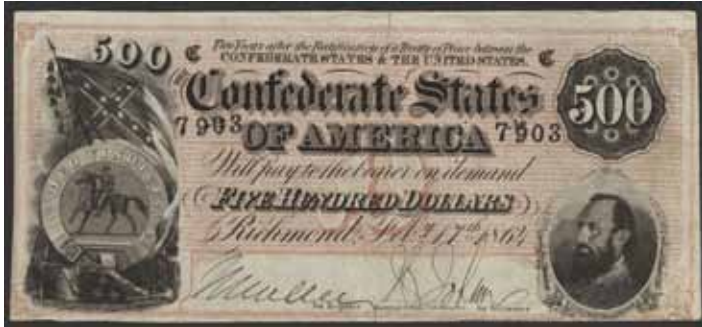 500 C Two Years after the Ratification of a Treaty of Peace between the C
CONFEDERATE STATES & THE UNITED STATES.
Confederate States 500
7903 OF AMERICA 7903
Will pay to the bearer on demand
FIVE HUNDRED DOLLARS
Richmond, Feb.y 17th 1864